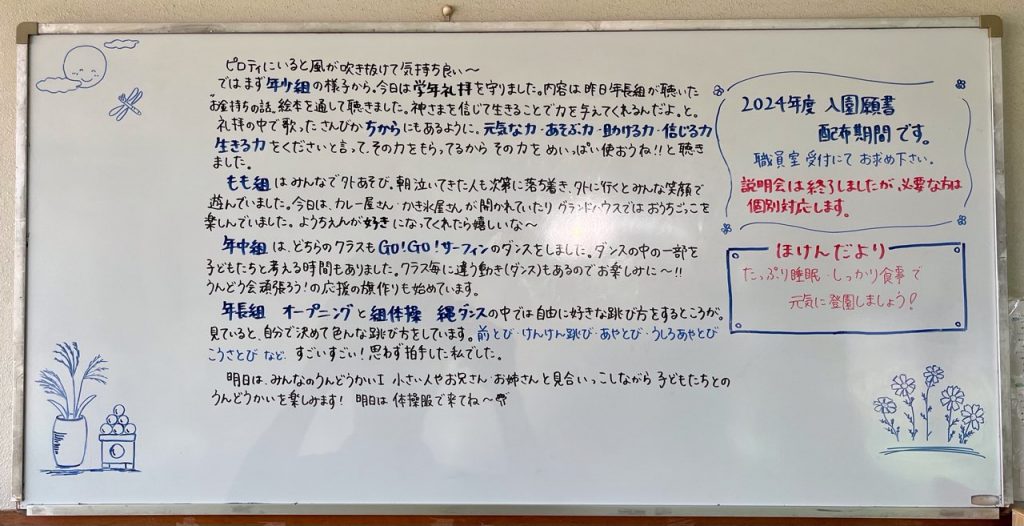 ピロティにいると風が吹き抜けて気持ち良い〜
ではまず年少組の様子から。今日は学年礼拝を守りました。内容は昨日年長組が聴いた
お金持ちの話。絵本を通して聴きました。神さまを信じて生きることで力を与えてくれるんだよ。と。
礼拝の中で歌ったさんびかちからにもあるように、元気な力・あそぶ力・助ける力・信じる力
生きる力をくださいと言って、その力をもらってるからその力をめいっぱい使おうね!!と聴き
ました。
もも組はみんなで外あそび。朝泣いてきた人も次第に落ち着き、外に行くとみんな笑顔で
遊んでいました。今日は、カレー屋さん・かき氷屋さんが開かれていたりグランドハウスではおうちごっこを
楽しんでいました。ようちえんが好きになってくれたら嬉しいな〜
年中組は、どちらのクラスもGO!GO!サーフィンのダンスをしました。ダンスの中の一部を
子どもたちと考える時間もありました。クラス毎に違う動き(ダンス)もあるのでお楽しみに〜!!
うんどう会頑張ろう!の応援の旗作りも始めています。
年長組 オープニングと組体操 縄ダンスの中では自由に好きな跳び方をするところが。
見ていると、自分で決めて色んな跳び方をしています。前とび・けんけん跳び・あやとび・うしろあやとび
こうさとび など すごいすごい!思わず拍手した私でした。
明日は、みんなのうんどうかいI 小さい人やお兄さん・お姉さんと見合いっこしながら子どもたちとの
うんどうかいを楽しみます! 明日は体操服で来てね〜
2024年度 入園願書
配布期間です。
職員室受付にてお求め下さい。
説明会は終了しましたが、必要な方は
個別対応します。
ほけんだより
たっぷり睡眠・しっかり食事で
元気に登園しましょう!